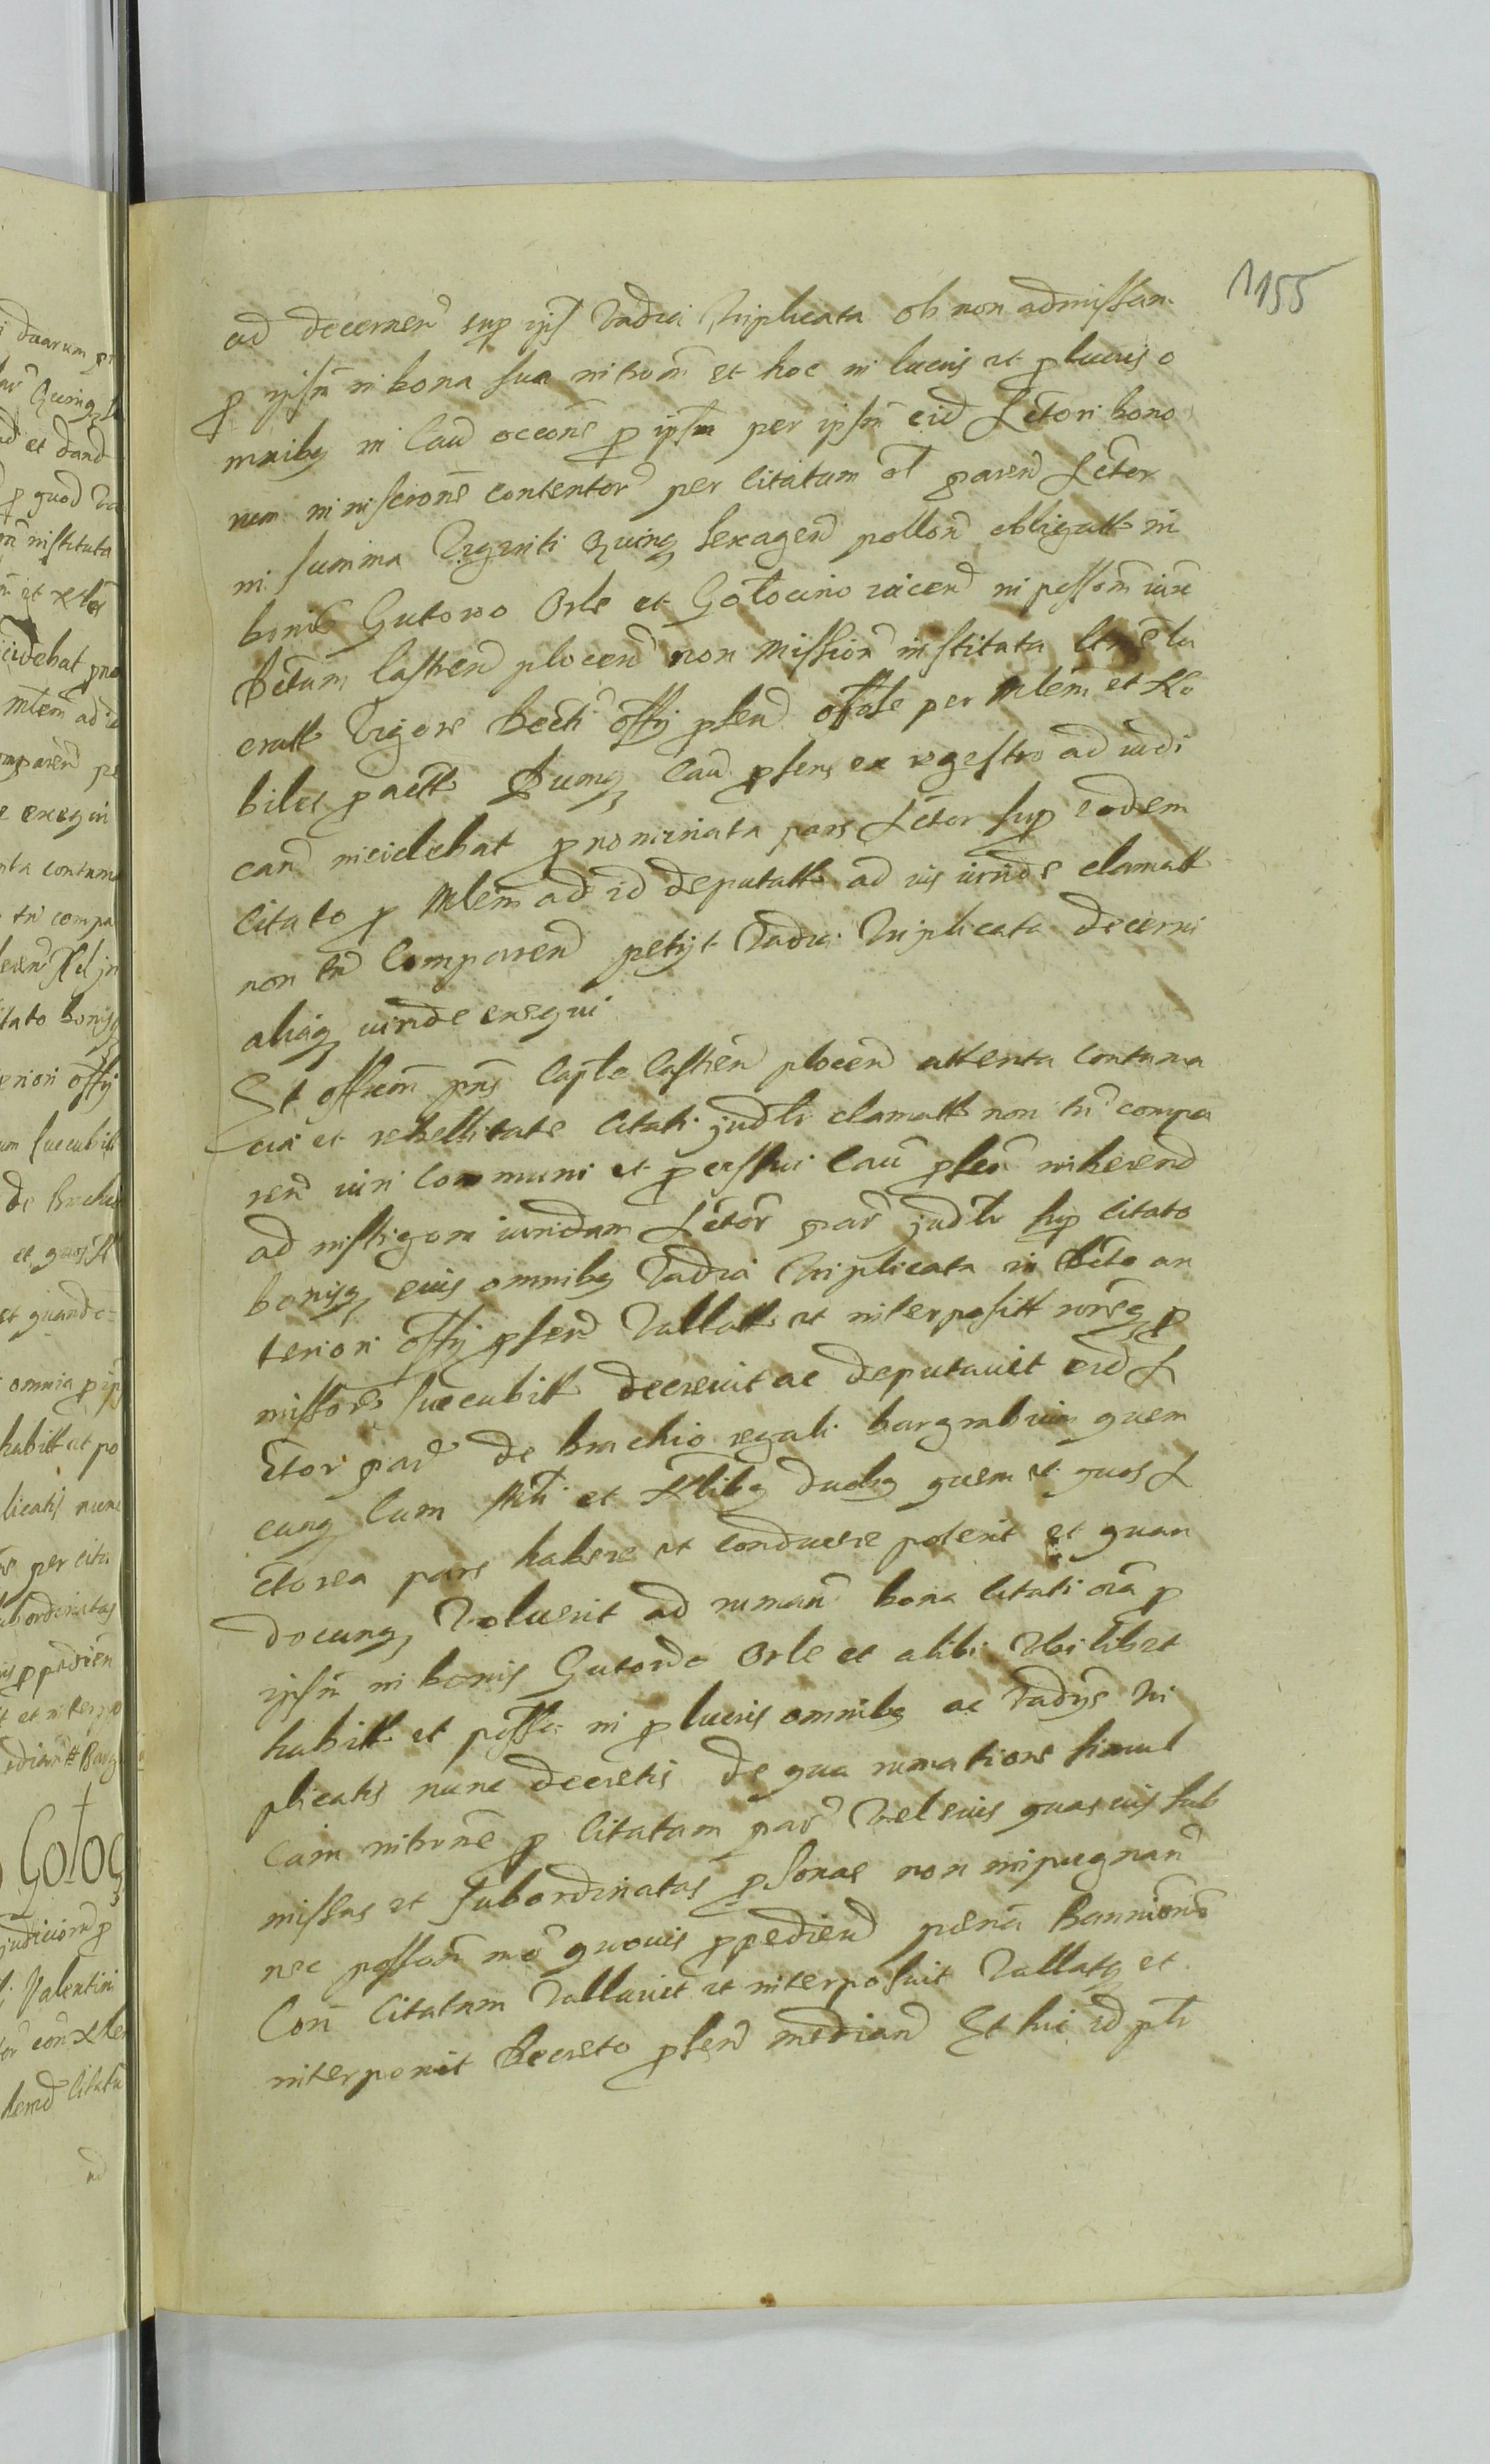 1155
ad decernend sup ips vadia triplicata ob non admissam
p ipsm in bona sua introm et hoc in lucris et p lucris o
mnibq in cau occone p ipsm per ipsm eid Actori bono
rum inniscione contentor per citatum parend Actor
in summa viginti quinq sexagend pollon obligatt in
bonis Gutowo Orle et Gołocino iacend in possom iure
castren plocen non mission instituta
eratt vigore decti offy psen per Mlem et No
biles p actt Cunq cau psens ex regestro ad iudi
cand incidebat pnominata pars Actor sup eodem
citato p Mlem ad id deputatt ad ius iuride clamatt
non tn comparend petyt vadia triplicata decerni
aliaq iuride exequi
Et officm pns Capte Castren plocen attenta contuma
cia et rebellitate citati judlr clamatt non tn compa
ren iuri communi et pcessui cau psen inherend
ad instigom iuridam Actor par judlr sup citato
bonisq eius omnibq vadia triplicata in dcto an
teriori offy psen vallatt et interpositt
missore succubitt decrevit ac deputavit eid A
ctor par de brachio regali burgrabium quem
cunq cum Mti et Nlibq duobq quem et quos A
ctorea pars habere et conducere poterit et quan
docunq voluerit ad ruman bona citati oia p
ipsm in bonis Gutowo Orle et alibi ubilibet
habitt et possa in p lucris omnibq ac vadys tri
plicatis nunc decretis de qua rumatione simul
cum introne p citatam par vel eius quasvis sub
missas et subordinatas psonas non impugnan
nec possom mo quovis ppediend pena Bannionis
Con citatam vallavit et interposuit vallatq et
interponit decreto psen median Et hic id ptr